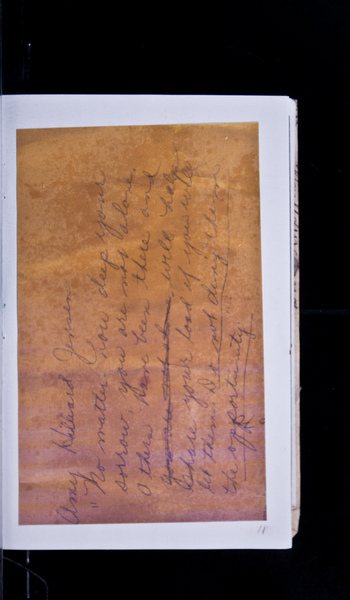 Amy Hilliard Jensen
"No matter how deep your
sorrow you are not alone.
Others have been there and
will help
share your load if you will
let them. Do not deny them
the opportunity."